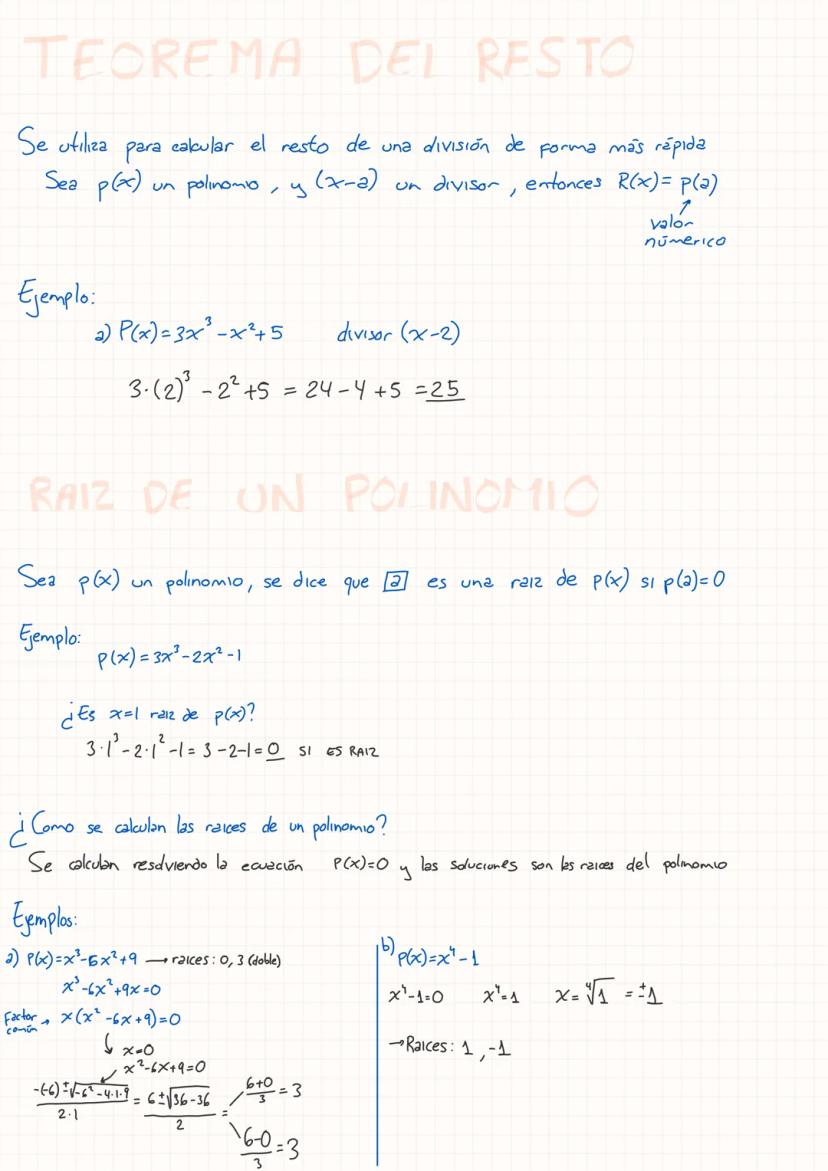 TEOREMA DEL RESTO
Se utiliza para calcular el resto de una división de forma más rápida
Sea p(x) un polinomio, y (x-a) un divisor, entonces R(x)= p(a)
valor
númerico
Ejemplo:
a) P(x)=3x³-x²+5 divisor (x-2)
3·(2)³ - 2² +5 = 24-4+5 =25
RAIZ DE UN POLINOMIO
Sea p(x) un polinomio, se dice que a es una raiz de p(x) si p(a)=0
Ejemplo:
p(x)=3x³-2x²-1
¿Es x=1 raiz de p(x)?
3·1³-2·1²-1= 3-2-1=0 SI ES RAIZ
¿Como se calculan las raices de un polinomio?
Se calculan resolviendo la ecuación P(x)=0 y las soluciones son las raices del polinomio
Ejemplos:
a) P(x)=x³-6x²+9 → raices: 0, 3 (doble)
x³-6x²+9x=0
Factor común → x(x²-6x+9)=0
x=0
x²-6x+9=0
-(-6)±√-6²-4·1·9 / 2·1 = 6±√36-36 / 2 =
6+0/3 = 3
6-0/3 = 3
b) p(x)=x⁴-1
x⁴-1=0 x⁴=1 x=⁴√1 = ±1
→Raices: 1, -1